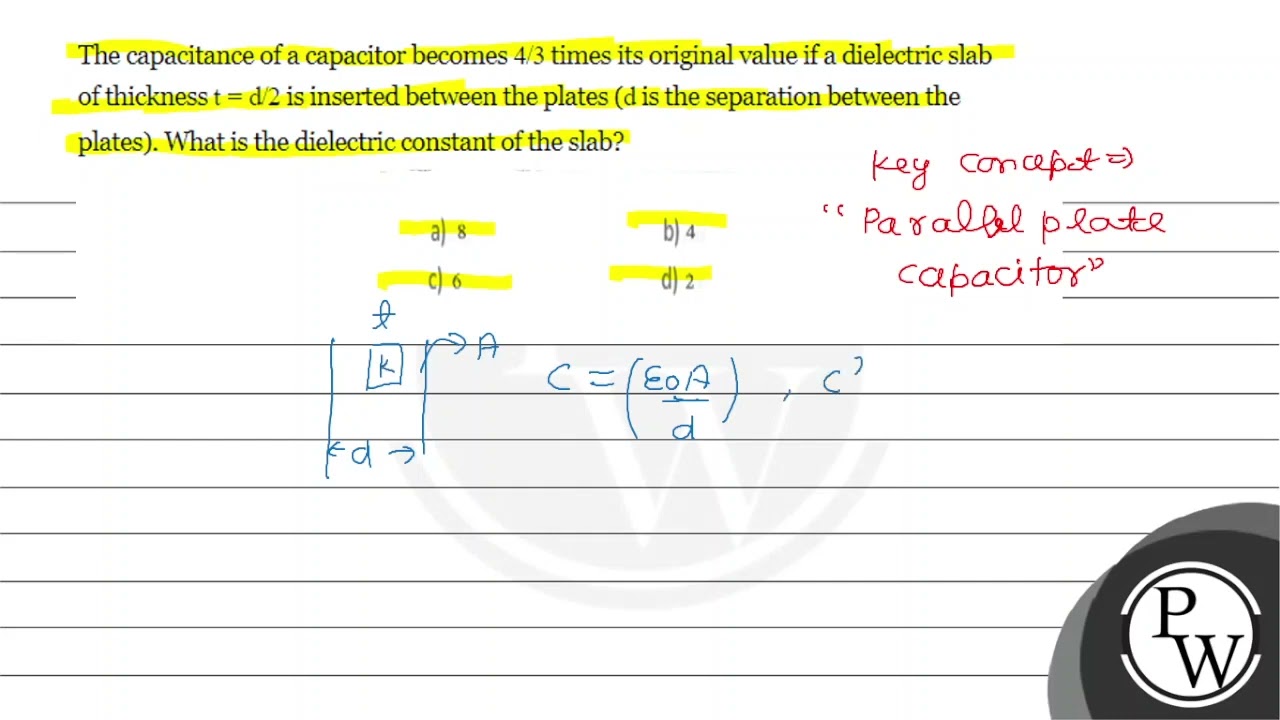 The capacitance of a capacitor becomes 4/3 times its original value if a dielectric slab
of thickness t = d/2 is inserted between the plates (d is the separation between the
plates). What is the dielectric constant of the slab?
key concept ⇒
"Parallel plate
capacitor"
a) 8 b) 4
c) 6 d) 2
t
K → A
← d →
C = (ε0A/d) , C'
P
W